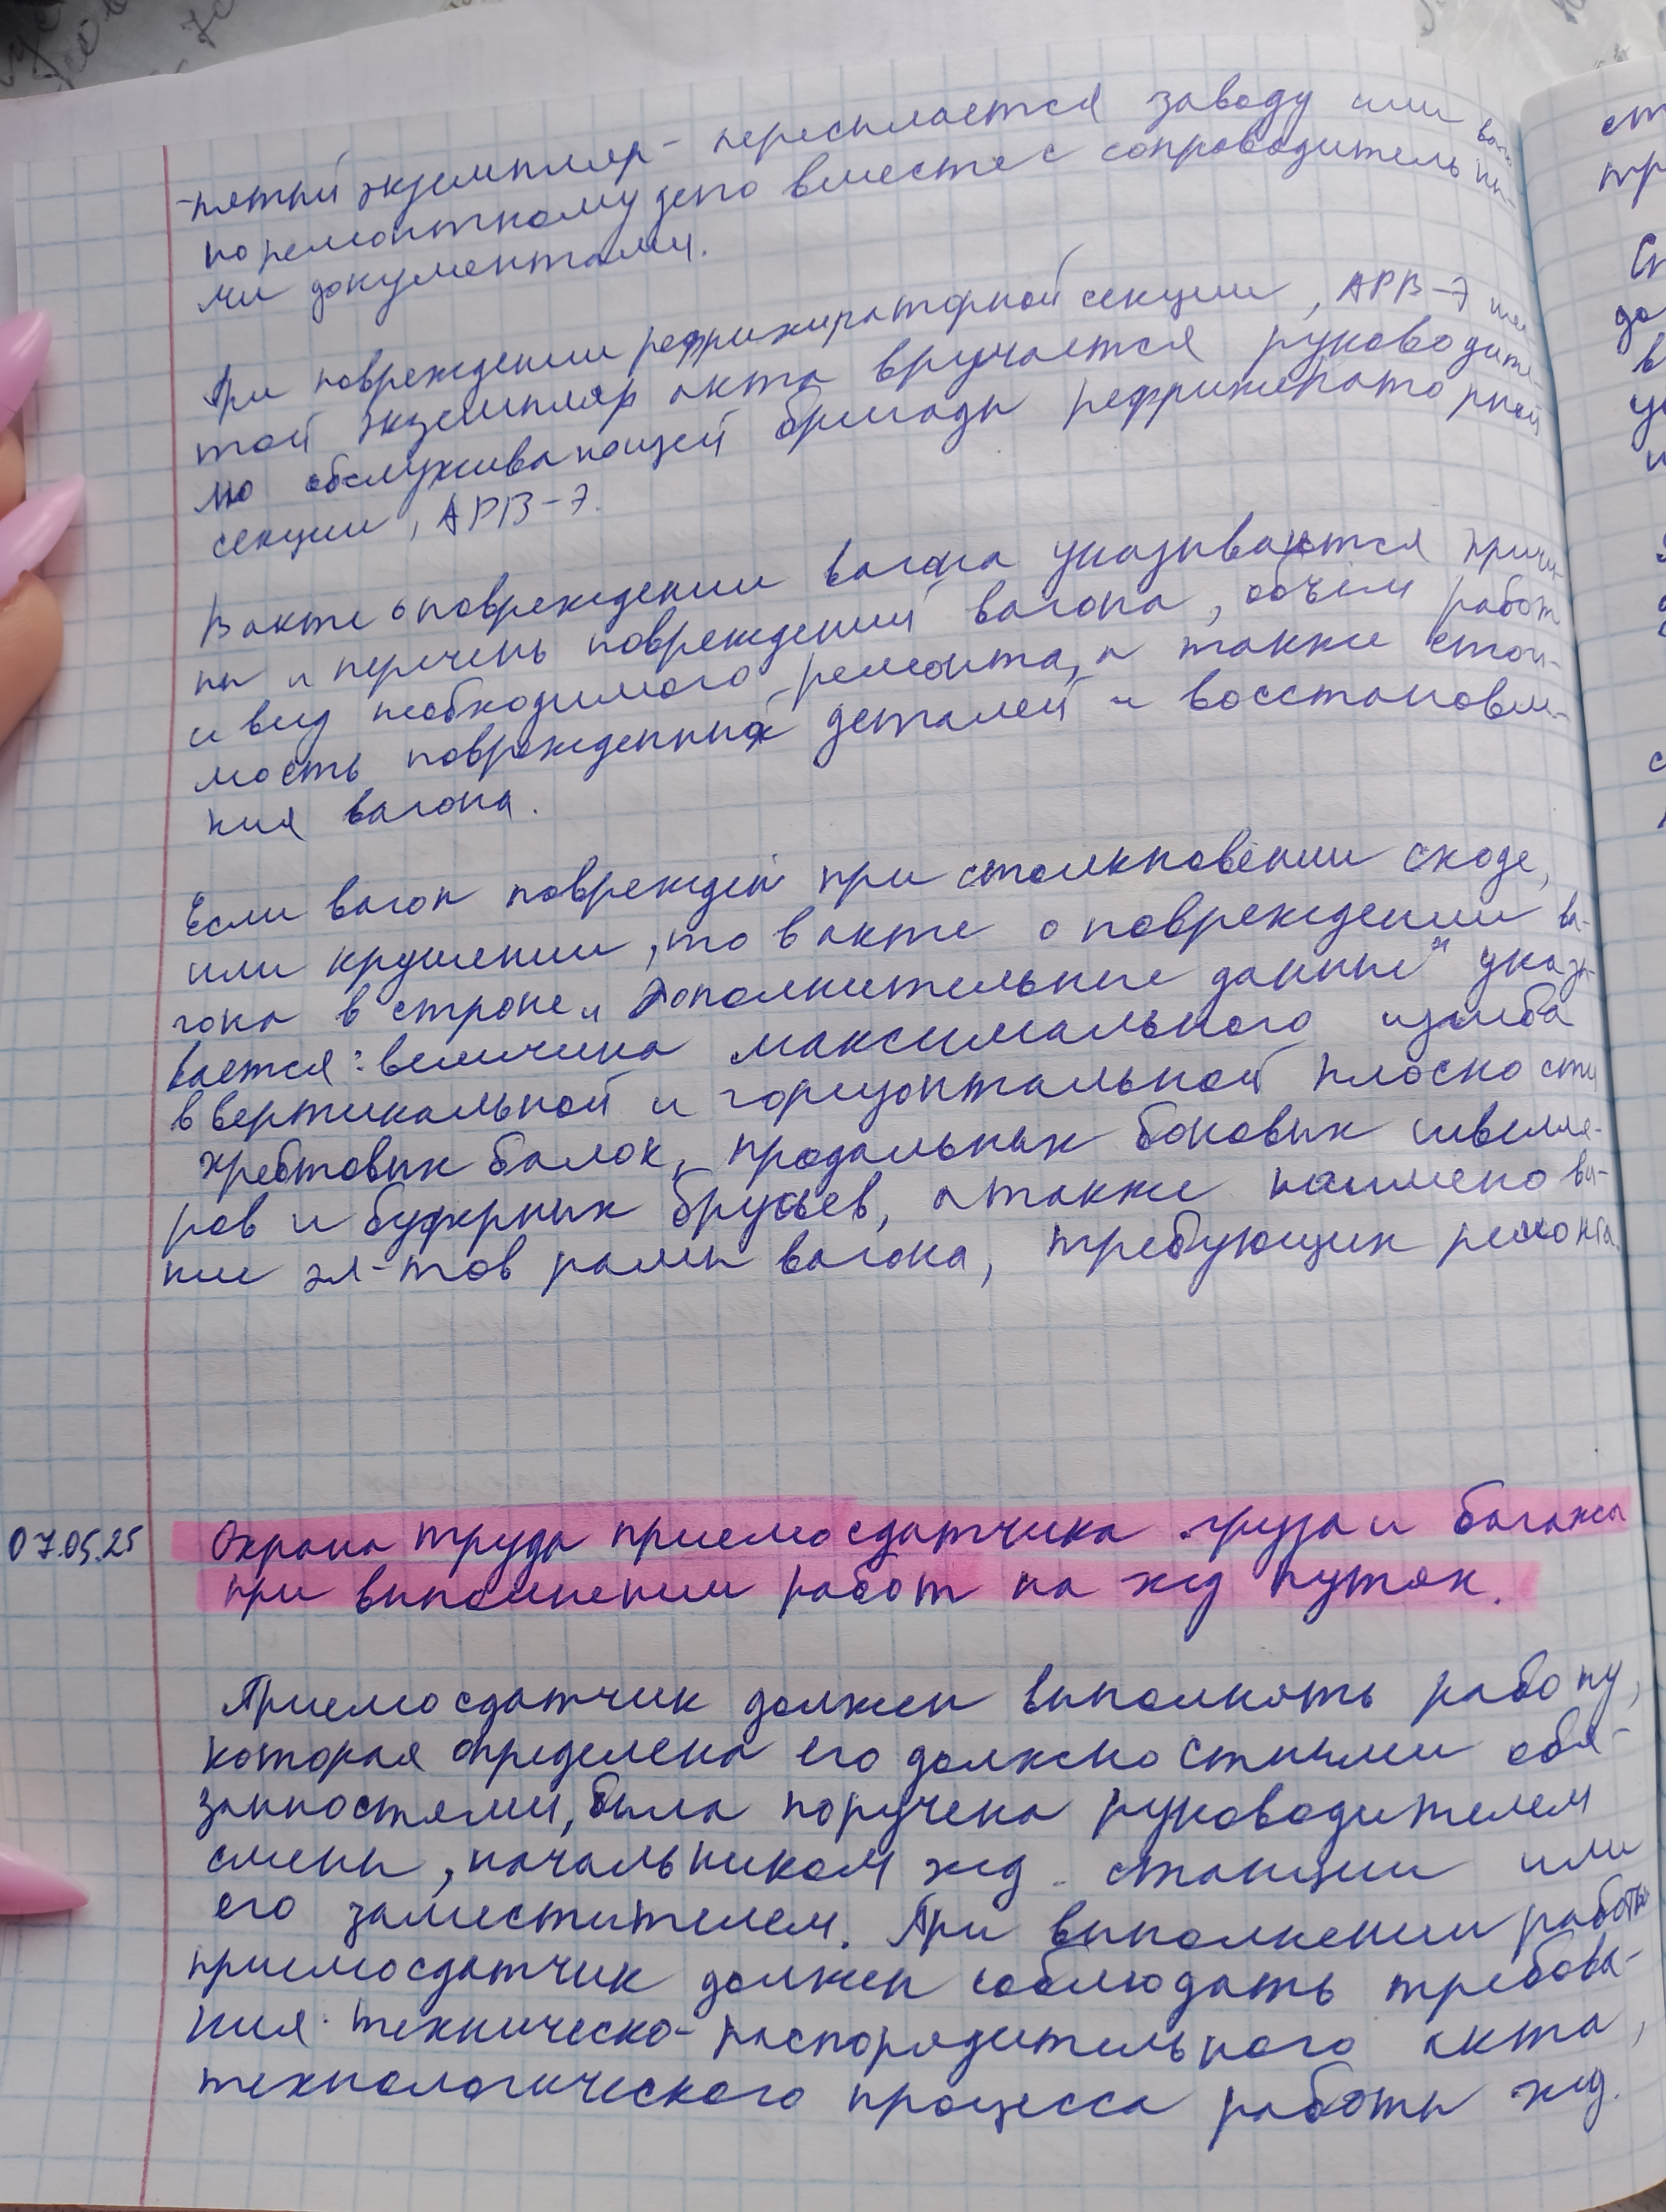 -пятый экземпляр - пересылается заводу или ваго-
норемонтному депо вместе с сопроводительны-
ми документами.
При повреждении рефрижираторной секции, АРВ-Э шес
той экземпляр акта вручается руководите-
лю обслуживающей бригады рефрижираторной
секции, АРВ-Э.
В акте о повреждении вагона указываются причи-
ны и перечень повреждений вагона, объём работ
и вид необходимого ремонта, а также стои-
мость повреждённых деталей и восстановле-
ния вагона.
Если вагон повреждён при столкновении сходе,
или крушении, то в акте о повреждении ва-
гона в строке „Дополнительные данные" указы-
вается: величина максимального изгиба
в вертикальной и горизонтальной плоскости
хребтовых балок, продальных боковых швелле-
ров и буферных брусьев, а также наименова-
ние эл-тов рамы вагона, требующих ремонта.
07.05.25
Охрана труда приемосдатчика груза и багажа
при выполнении работ на жд путях.
Приемосдатчик должен выполнять работу,
которая определена его должностными обя-
занностями, была поручена руководителем
смены, начальником жд. станции или
его заместителем. При выполнении работы
приемосдатчик должен соблюдать требова-
ния техническо-распорядительного акта,
технологического процесса работы жд.